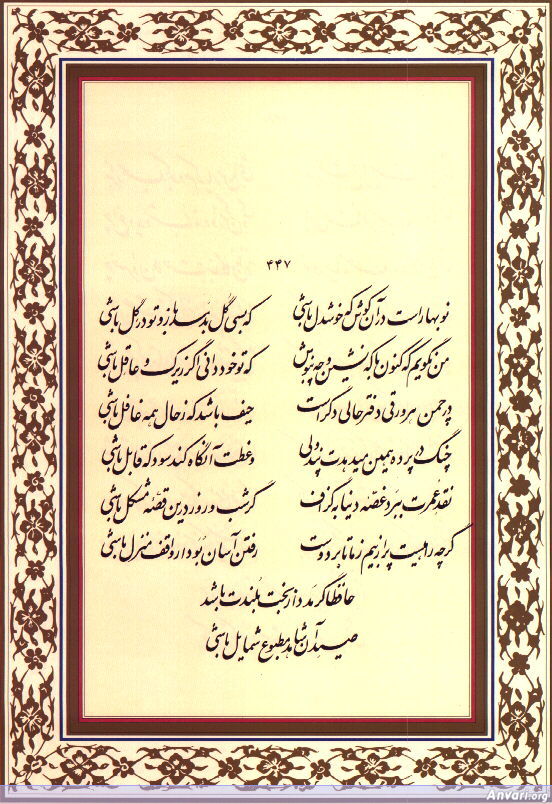 ۴۴۷
نوبهارست در آن کوش که خوشدل باشی که بسی گل بدمد باز و تو در گل باشی
من نگویم که کنون با که نشین و چه بنوش که تو خود دانی اگر زیرک و عاقل باشی
در چمن هر ورقی دفتر حالی دگر است حیف باشد که ز حال همه غافل باشی
چنگ در پرده همین میدهدت پند ولی وعظت آنگاه کند سود که قابل باشی
نقد عمرت ببرد غصه دنیا به گزاف گر شب و روز درین قصه مشکل باشی
گرچه راهیست پر از بیم ز ما تا بر دوست رفتن آسان بود ار واقف منزل باشی
حافظا گر مدد از بخت بلندت باشد
صید آن شاهد مطبوع شمایل باشی
Anvari.org